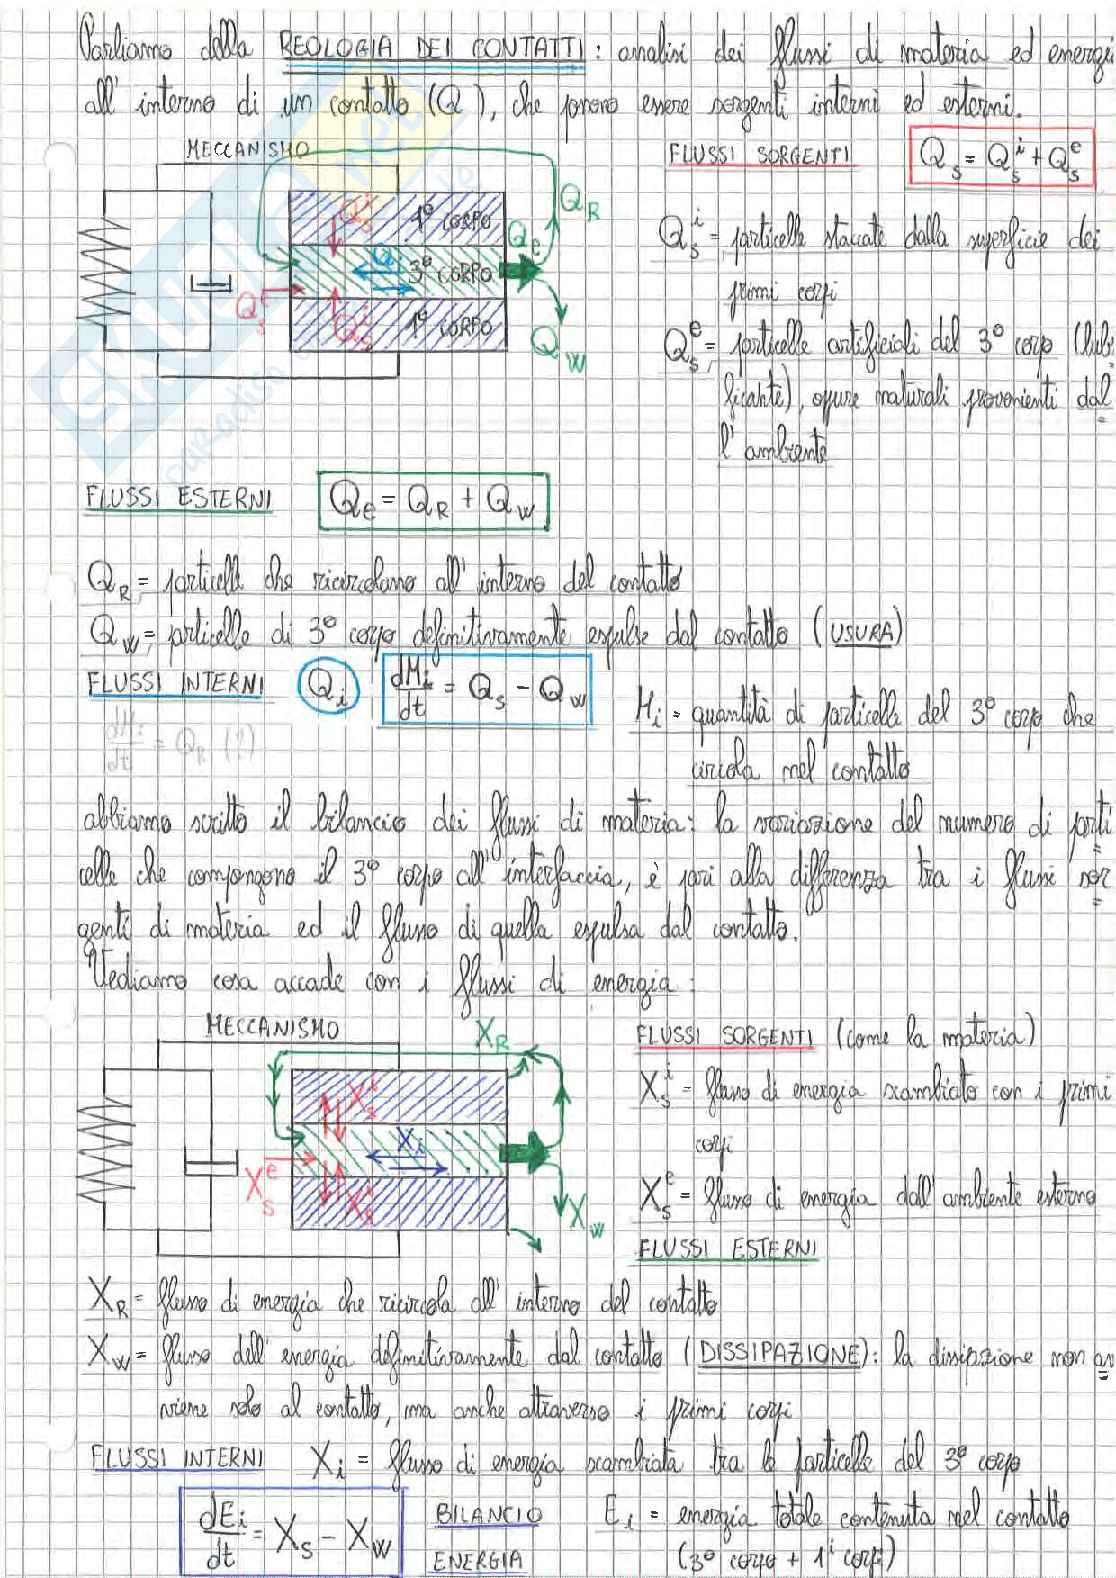 Parliamo della REOLOGIA DEI CONTATTI: analisi dei flussi di materia ed energi
all'interno di un contatto (Q), che possono essere sorgenti interni ed esterni.
MECCANISMO
FLUSSI SORGENTI Q_s = Q_s^i + Q_s^e
Q_R
Q_s^i 1° CORPO
Q_e
Q_i 3° CORPO
Q_s^e
Q_s^i 1° CORPO
Q_w
Q_s^i = particelle staccate dalla superficie dei
primi corpi
Q_s^e = particelle artificiali del 3° corpo (lubri
ficante), oppure naturali provenienti dal
l'ambiente
FLUSSI ESTERNI Q_e = Q_R + Q_w
Q_R = particelle che ricircolano all'interno del contatto
Q_w = particelle di 3° corpo definitivamente espulse dal contatto (USURA)
FLUSSI INTERNI Q_i dM_i/dt = Q_s - Q_w
dM_i/dt = Q_R (?)
M_i = quantità di particelle del 3° corpo che
circola nel contatto
abbiamo scritto il bilancio dei flussi di materia: la variazione del numero di parti
celle che compongono il 3° corpo all'interfaccia, è pari alla differenza tra i flussi sor
genti di materia ed il flusso di quella espulsa dal contatto.
Vediamo cosa accade con i flussi di energia:
MECCANISMO
X_R
X_s^i
X_i
X_s^e
X_s^i
X_w
FLUSSI SORGENTI (come la materia)
X_s^i = flusso di energia scambiato con i primi
corpi
X_s^e = flusso di energia dall'ambiente esterno
FLUSSI ESTERNI
X_R = flusso di energia che ricircola all'interno del contatto
X_w = flusso dell'energia definitivamente dal contatto (DISSIPAZIONE): la dissipzione non av
viene solo al contatto, ma anche attraverso i primi corpi
FLUSSI INTERNI X_i = flusso di energia scambiata tra le particelle del 3° corpo
dE_i/dt = X_s - X_w BILANCIO ENERGIA
E_i = energia totale contenuta nel contatto
(3° corpo + 1^i corpi)